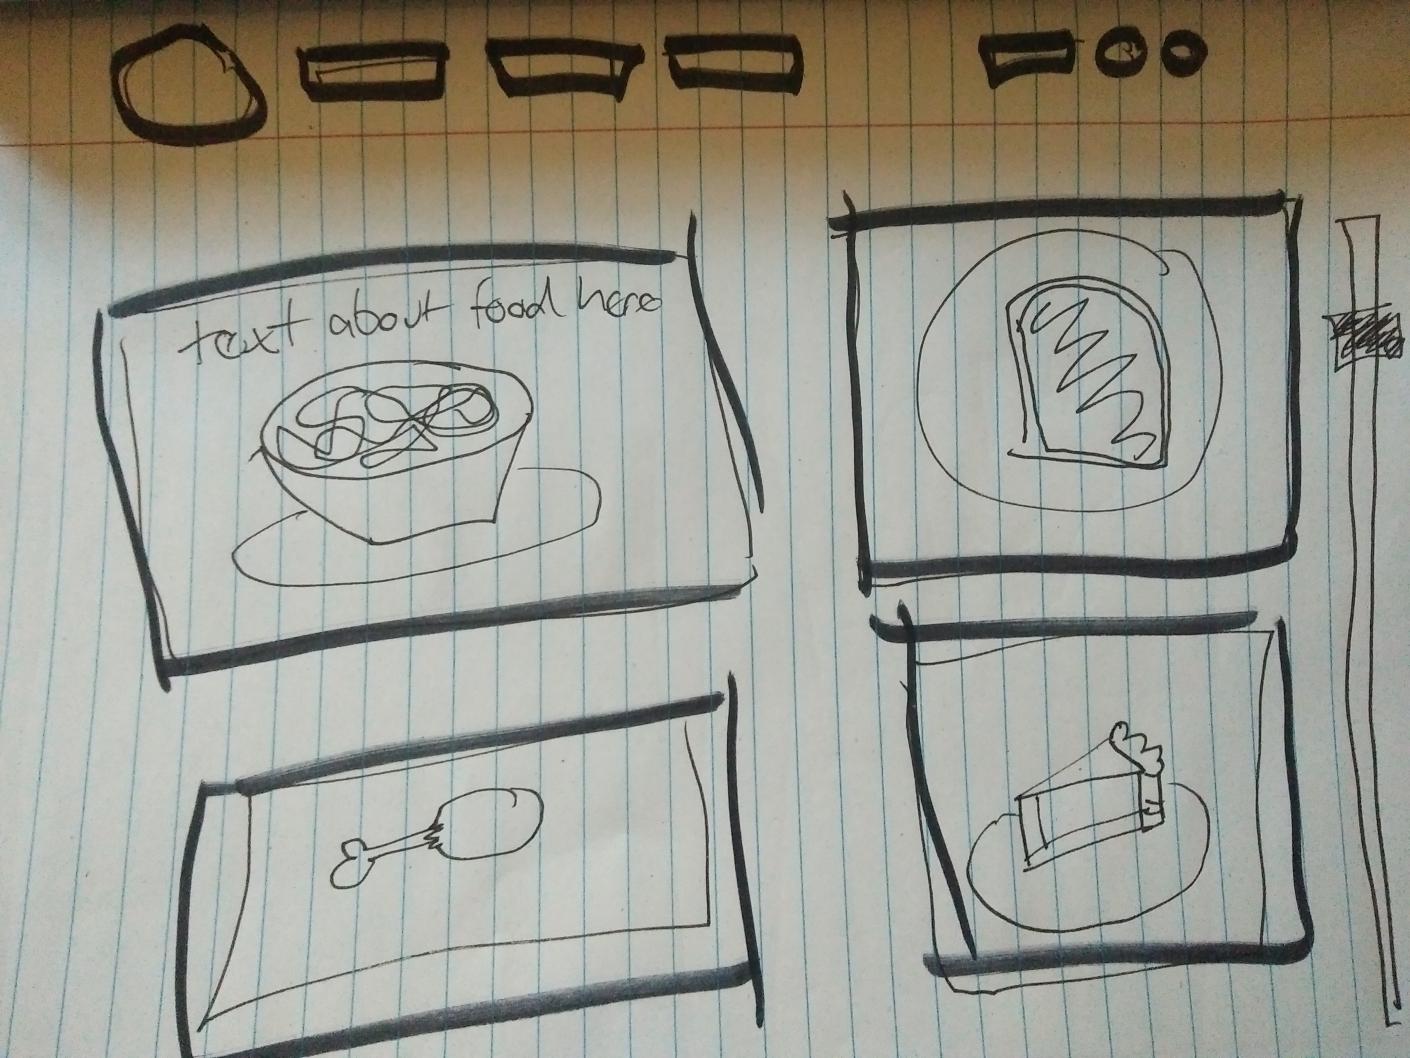 text about food here